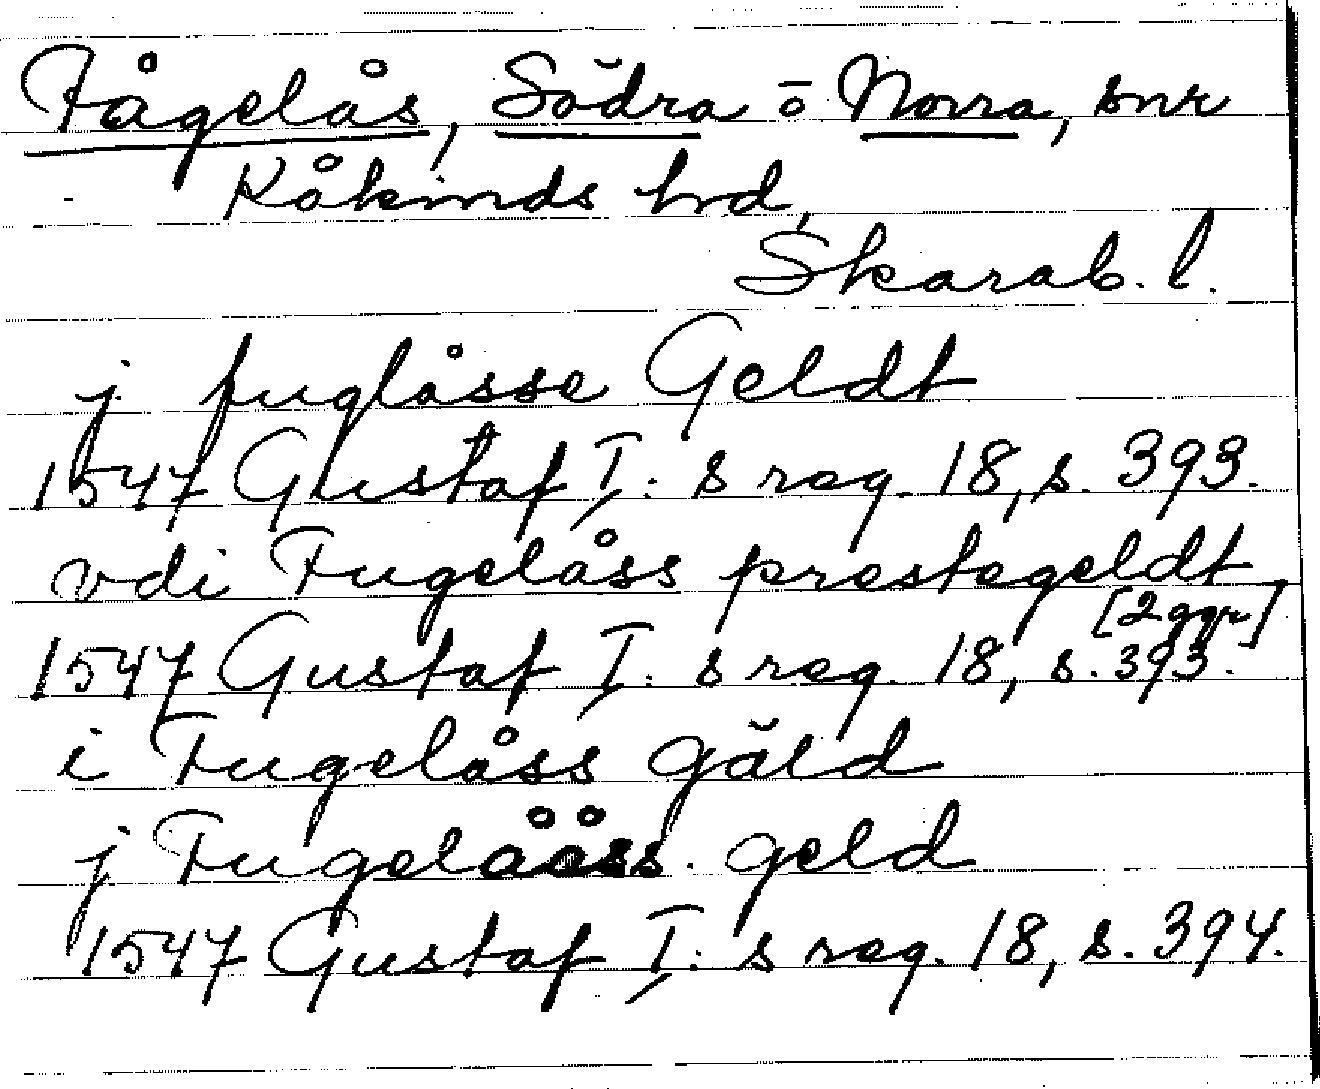 Fågelås, Södra o Norra, snr
Kåkinds hrd,
Skarab. l.
j fuglåsse Geldt
1547 Gustaf I: s reg. 18, s. 393.
vdi Fugelåss prestegeldt
[2 ggr]
1547 Gustaf I: s reg. 18, s. 393.
i Fugelåss gäld
j Fugelååss geld
1547 Gustaf I: s reg. 18, s. 394.